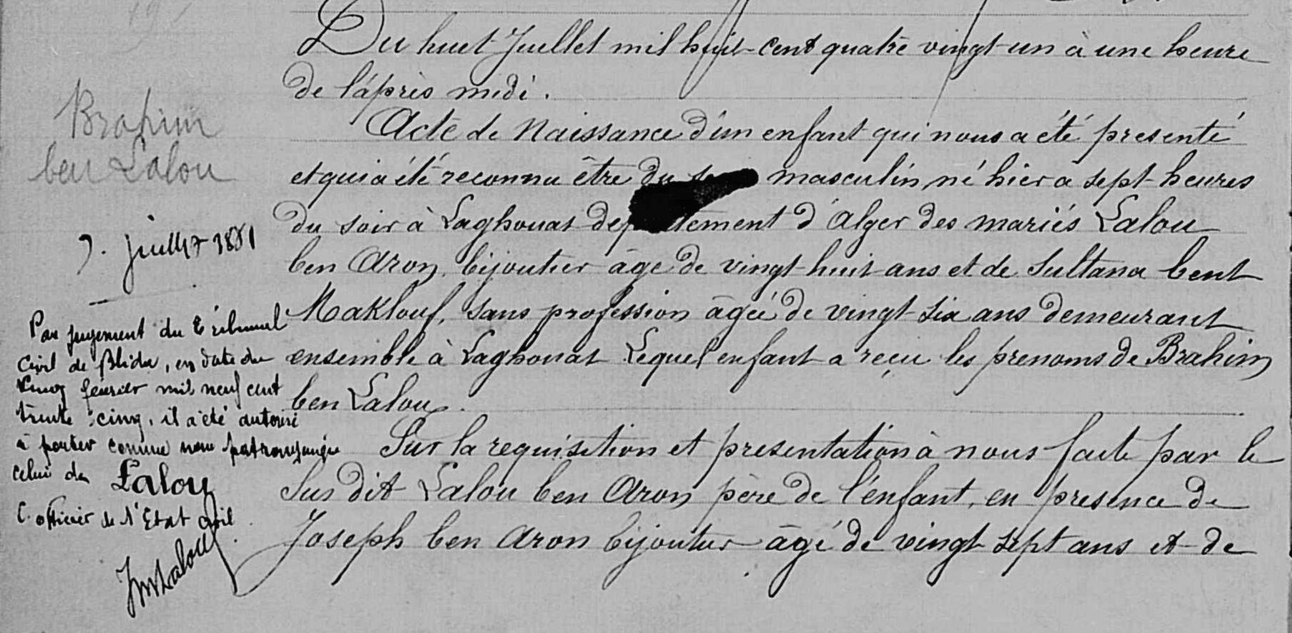 Brahim
ben Lalou
7. Juillet 1881
Par jugement du Tribunal
Civil de Blida, en date du
cinq février mil neuf cent
trente cinq, il a été autorisé
à porter comme nom patronymique
celui de Lalou
L'officier de l'Etat Civil.
Du huit Juillet mil huit-cent quatre vingt un à une heure
de l'après midi.
Acte de Naissance d'un enfant qui nous a été presenté
et qui a été reconnu être du masculin né hier a sept heures
du soir à Laghouat departement d'Alger des mariés Lalou
ben Aron, bijoutier âgé de vingt huit ans et de Sultana bent
Maklouf, sans profession âgée de vingt six ans demeurant
ensemble à Laghouat Lequel enfant a reçu les prenoms de Brahim
ben Lalou.
Sur la requisition et presentation à nous faite par le
Sus dit Lalou ben Aron, père de l'enfant, en presence de
Joseph ben Aron bijoutier âgé de vingt sept ans et de